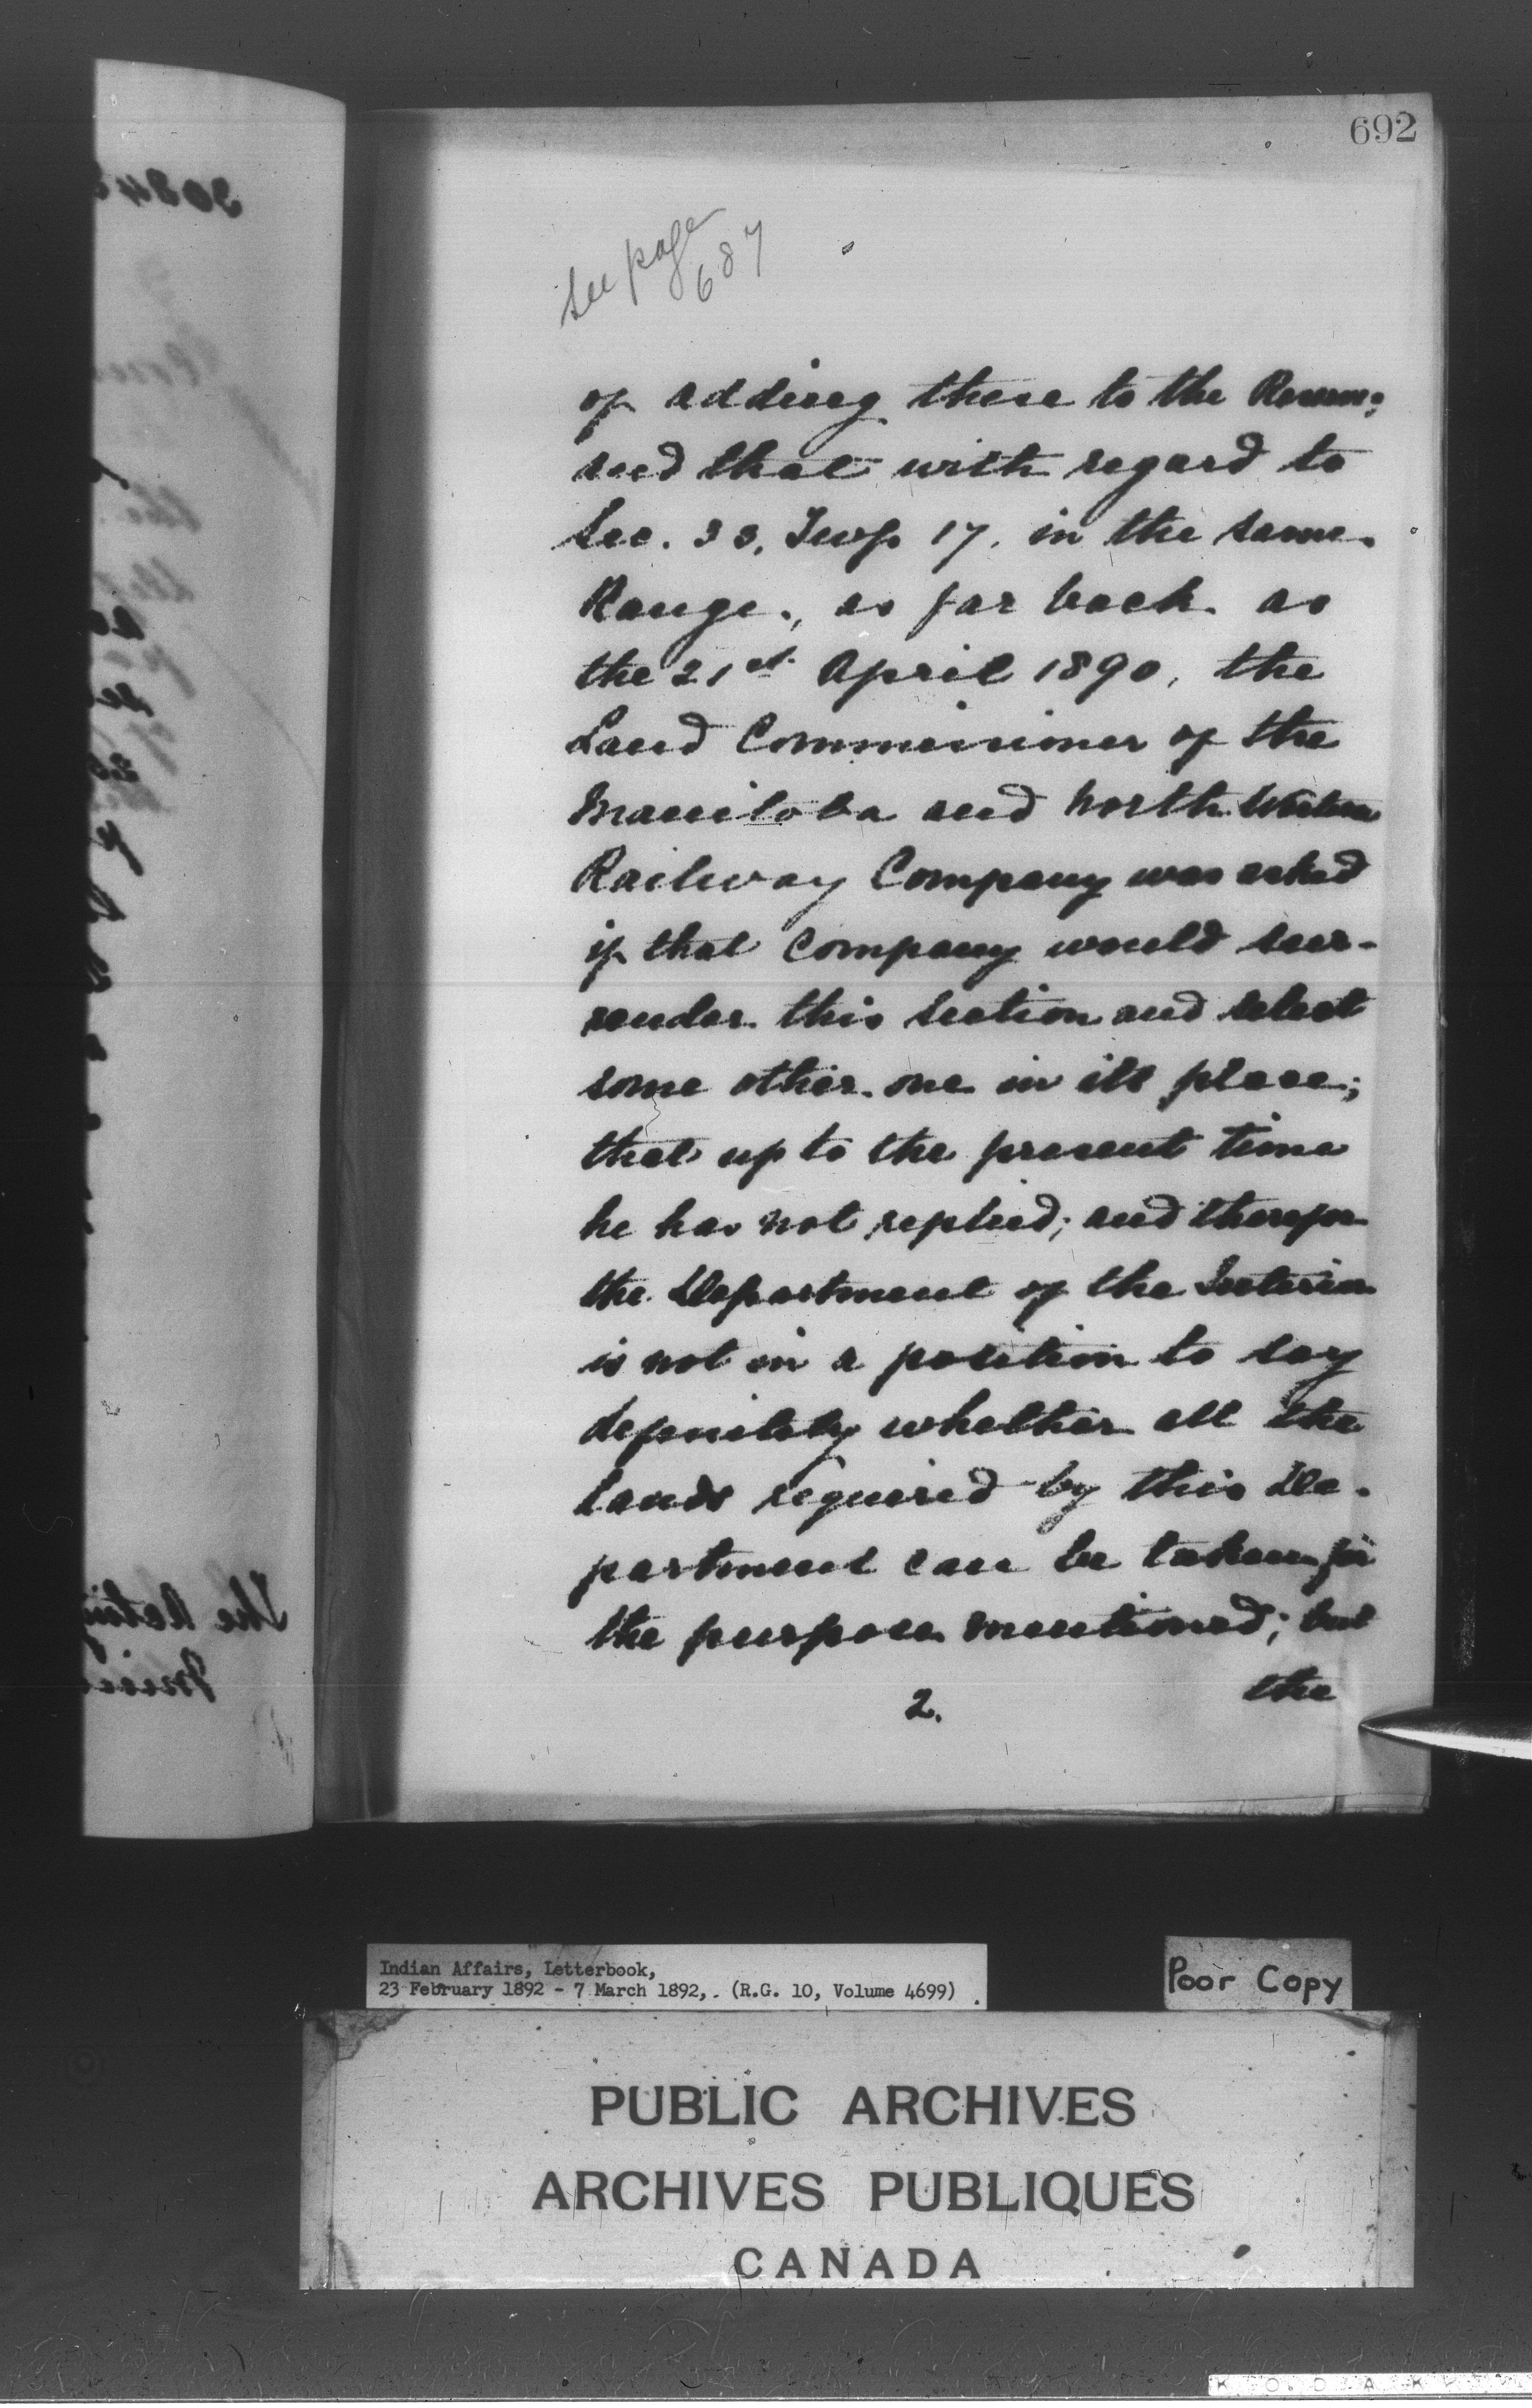 692
See page
687
of adding these to the Reserve;
and that with regard to
Sec. 33, Twp 17, in the same
Range, as far back as
the 21st April 1890, the
Land Commissioner of the
Manitoba and North Western
Railway Company was asked
if that Company would sur-
render this section and select
some other one in its place;
that up to the present time
he has not replied; and therefore
the Department of the Interior
is not in a position to say
definitely whether all the
lands required by this De-
partment can be taken for
the purpose mentioned; but
2. the
Indian Affairs, Letterbook,
23 February 1892 - 7 March 1892, (R.G. 10, Volume 4699)
Poor Copy
PUBLIC ARCHIVES
ARCHIVES PUBLIQUES
CANADA
KODAK